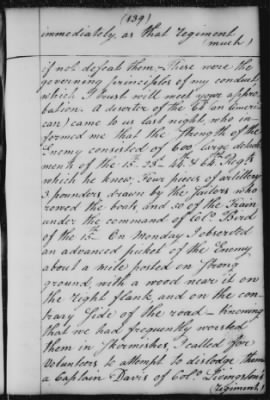 (139)
immediately, as that regiment
(much)
if not defeat them — These were the
governing principles of my conduct,
which I trust will meet your appro-
bation. A deserter of the 64th (an Ameri-
can) came to us last night, who in-
formed me that the strength of the
Enemy consisted of 600, large detach-
ments of the 15th 23d 44th & 64th Regts
which he knew, Four pieces of artillery
3 pounders drawn by the Sailors who
rowed the boats, and 20 of the Train
under the command of Colo. Bird
of the 15th. On Monday I observed
an advanced picket of the Enemy
about a mile posted on strong
ground, with a wood near it on
the right flank, and on the con-
trary side of the road — knowing
that we had frequently worsted
them in skirmishes, I called for
Volunteers to attempt to dislodge them
a Captain Davis of Colo. Livingston's
(regiment)